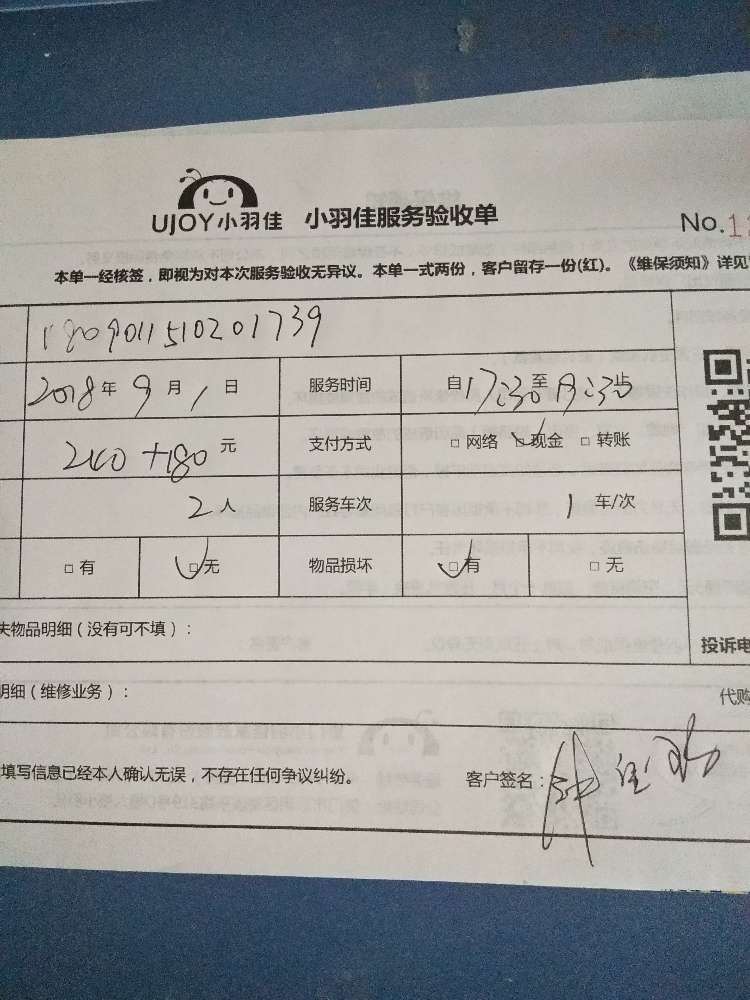 UJOY小羽佳 小羽佳服务验收单
No.1
本单一经核签，即视为对本次服务验收无异议。本单一式两份，客户留存一份(红)。《维保须知》详见
1809011510201739
2018年9月1日 服务时间 自17:30至9:30止
240+180元 支付方式 □网络 □现金 □转账
2人 服务车次 1车/次
□有 □无 物品损坏 □有 □无
失物品明细（没有可不填）：
投诉电
明细（维修业务）：
代购
填写信息已经本人确认无误，不存在任何争议纠纷。 客户签名：